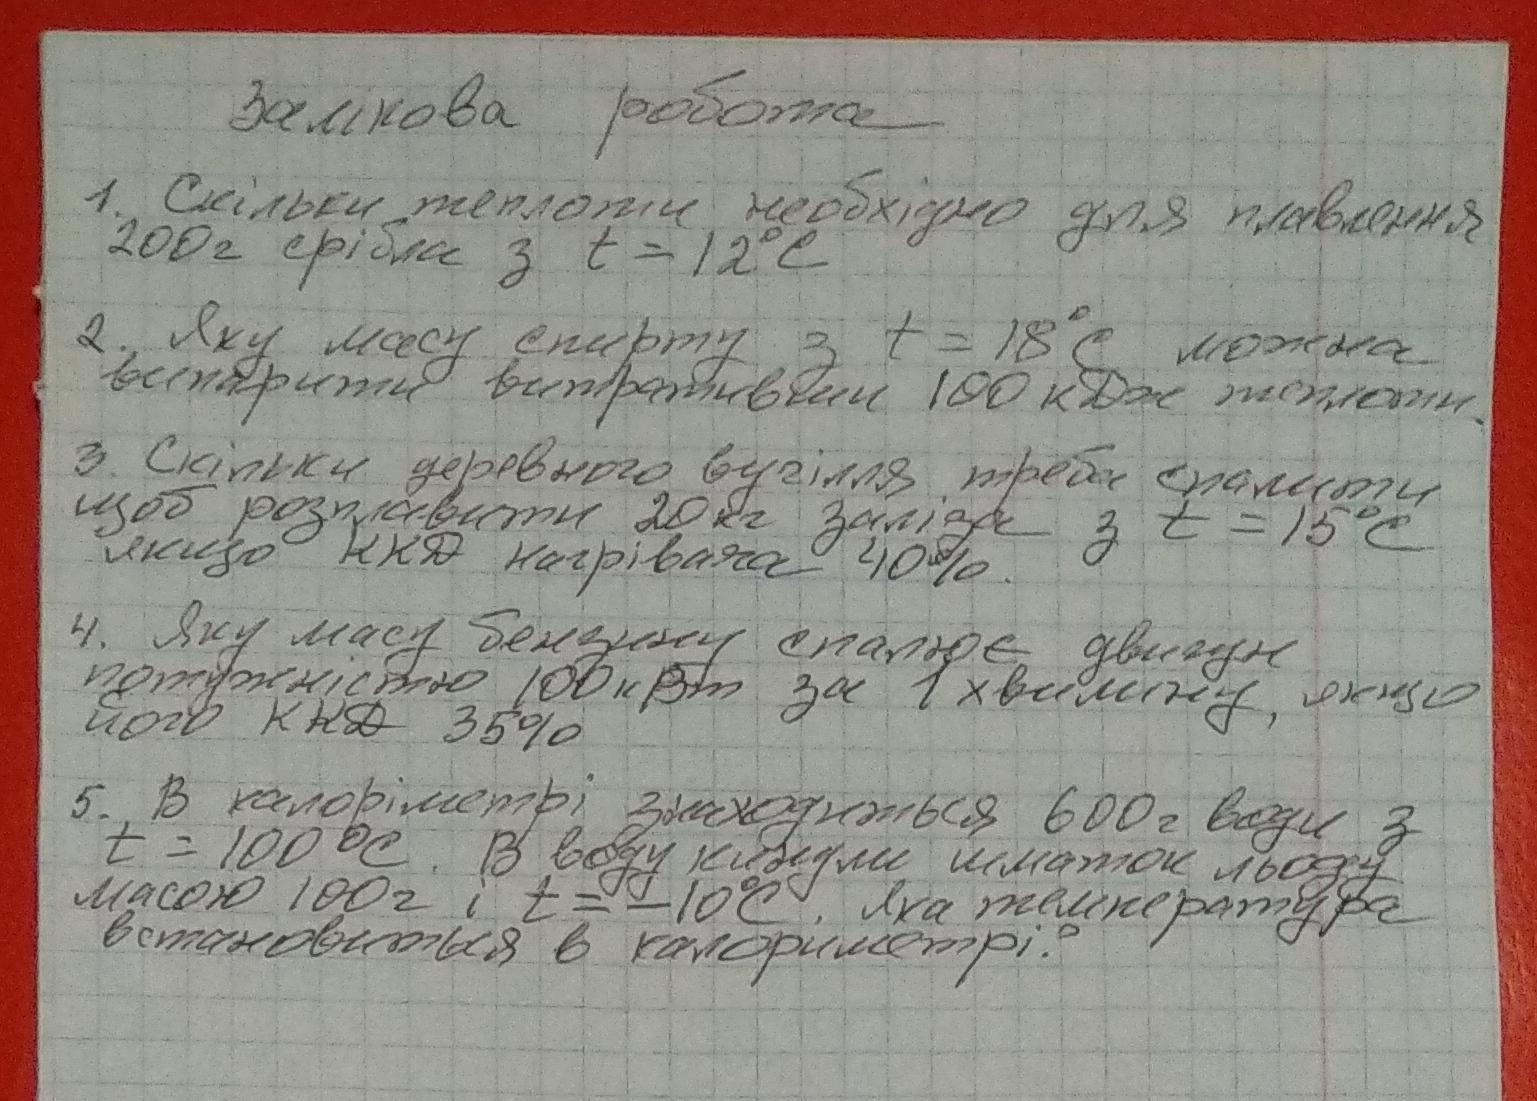 Залікова робота
1. Скільки теплоти необхідно для плавлення
200г срібла з t = 12°C
2. Яку масу спирту з t = 18°C можна
випарити витративши 100 кДж теплоти.
3. Скільки деревного вугілля треба спалити
щоб розплавити 20кг заліза з t = 15°C
якщо ККД нагрівача 40%.
4. Яку масу бензину спалює двигун
потужністю 100кВт за 1 хвилину, якщо
його ККД 35%
5. В калоріметрі знаходиться 600г води з
t = 100°C. В воду кинули шматок льоду
масою 100г і t = -10°C. Яка температура
встановиться в калориметрі?